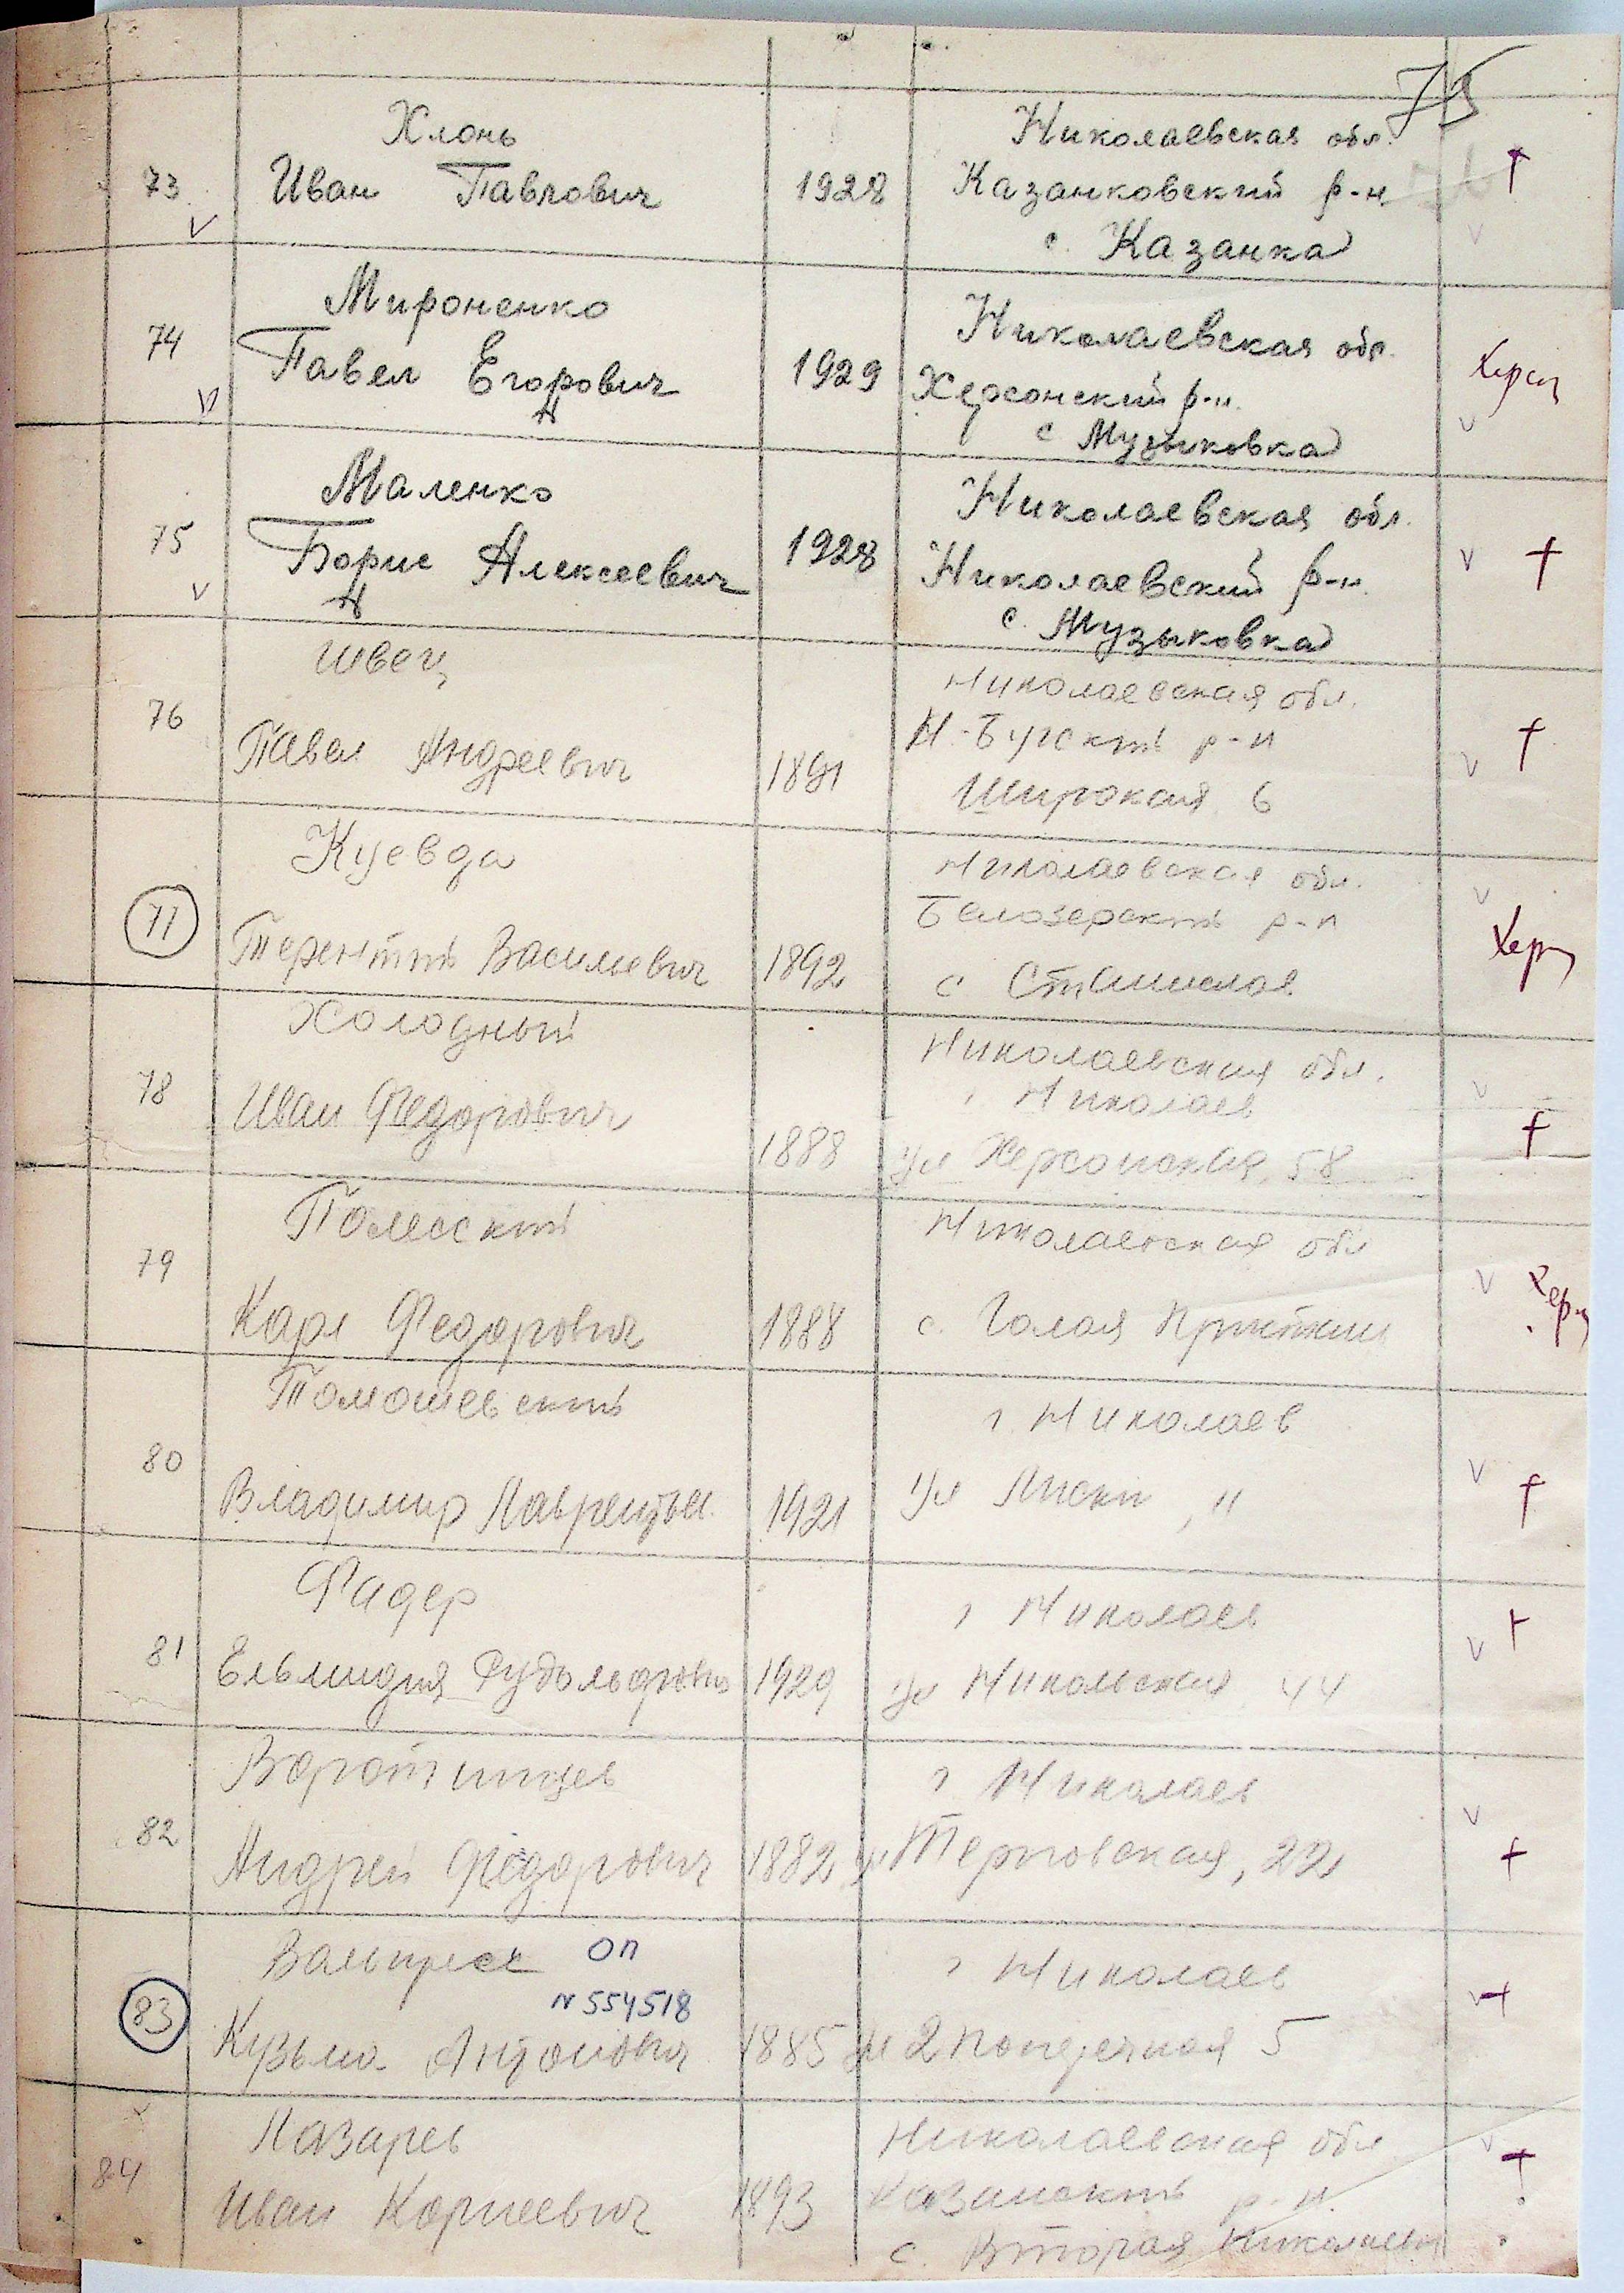 75
Хлонь
Николаевская обл.
73 Иван Павлович 1928 Казанковский р-н †
с. Казанка
Мироненко
Николаевская обл.
74 Павел Егорович 1929 Херсонский р-н. Херсон
с Музыковка
Маленко
Николаевская обл.
75 Борис Алексеевич 1928 Николаевский р-н. †
с. Музыковка
Швец
Николаевская обл.
76 Н.-Бугский р-н †
Павел Андреевич 1891 Широкая 6
Куевда
Николаевская обл.
77 Белозерский р-н Херс
Терентий Васильевич 1892 с Станислав
Холодный
Николаевская обл.
78 г Николаев
Иван Федорович 1888 ул Херсонская, 58 †
Полесский
Николаевская обл
79 Херс
Карл Федорович 1888 с. Голая Пристань
Томашевский
г. Николаев
80 Владимир Лаврентьев. 1921 Ул Лиски, 11 †
Фадер
г Николаев †
81 Рудольфовна 1929 ул Никольская 44
Воротынцев
г Николаев
82 Андрей Федорович 1882 ул Терновская, 22 †
ОП
г Николаев
83 N 554518 †
Кузьма Антонович 1885 ул 2 Поперечная 5
Лазарев
Николаевская обл
84 Иван Корнеевич 1893 Казанский р-н. †
с. Вторая